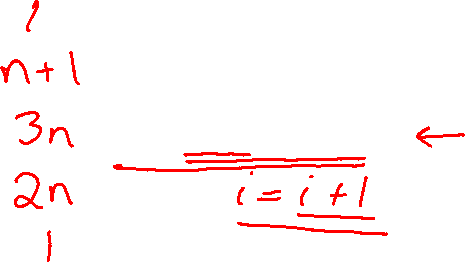 1
n+1
3n
2n
i = i + 1
1